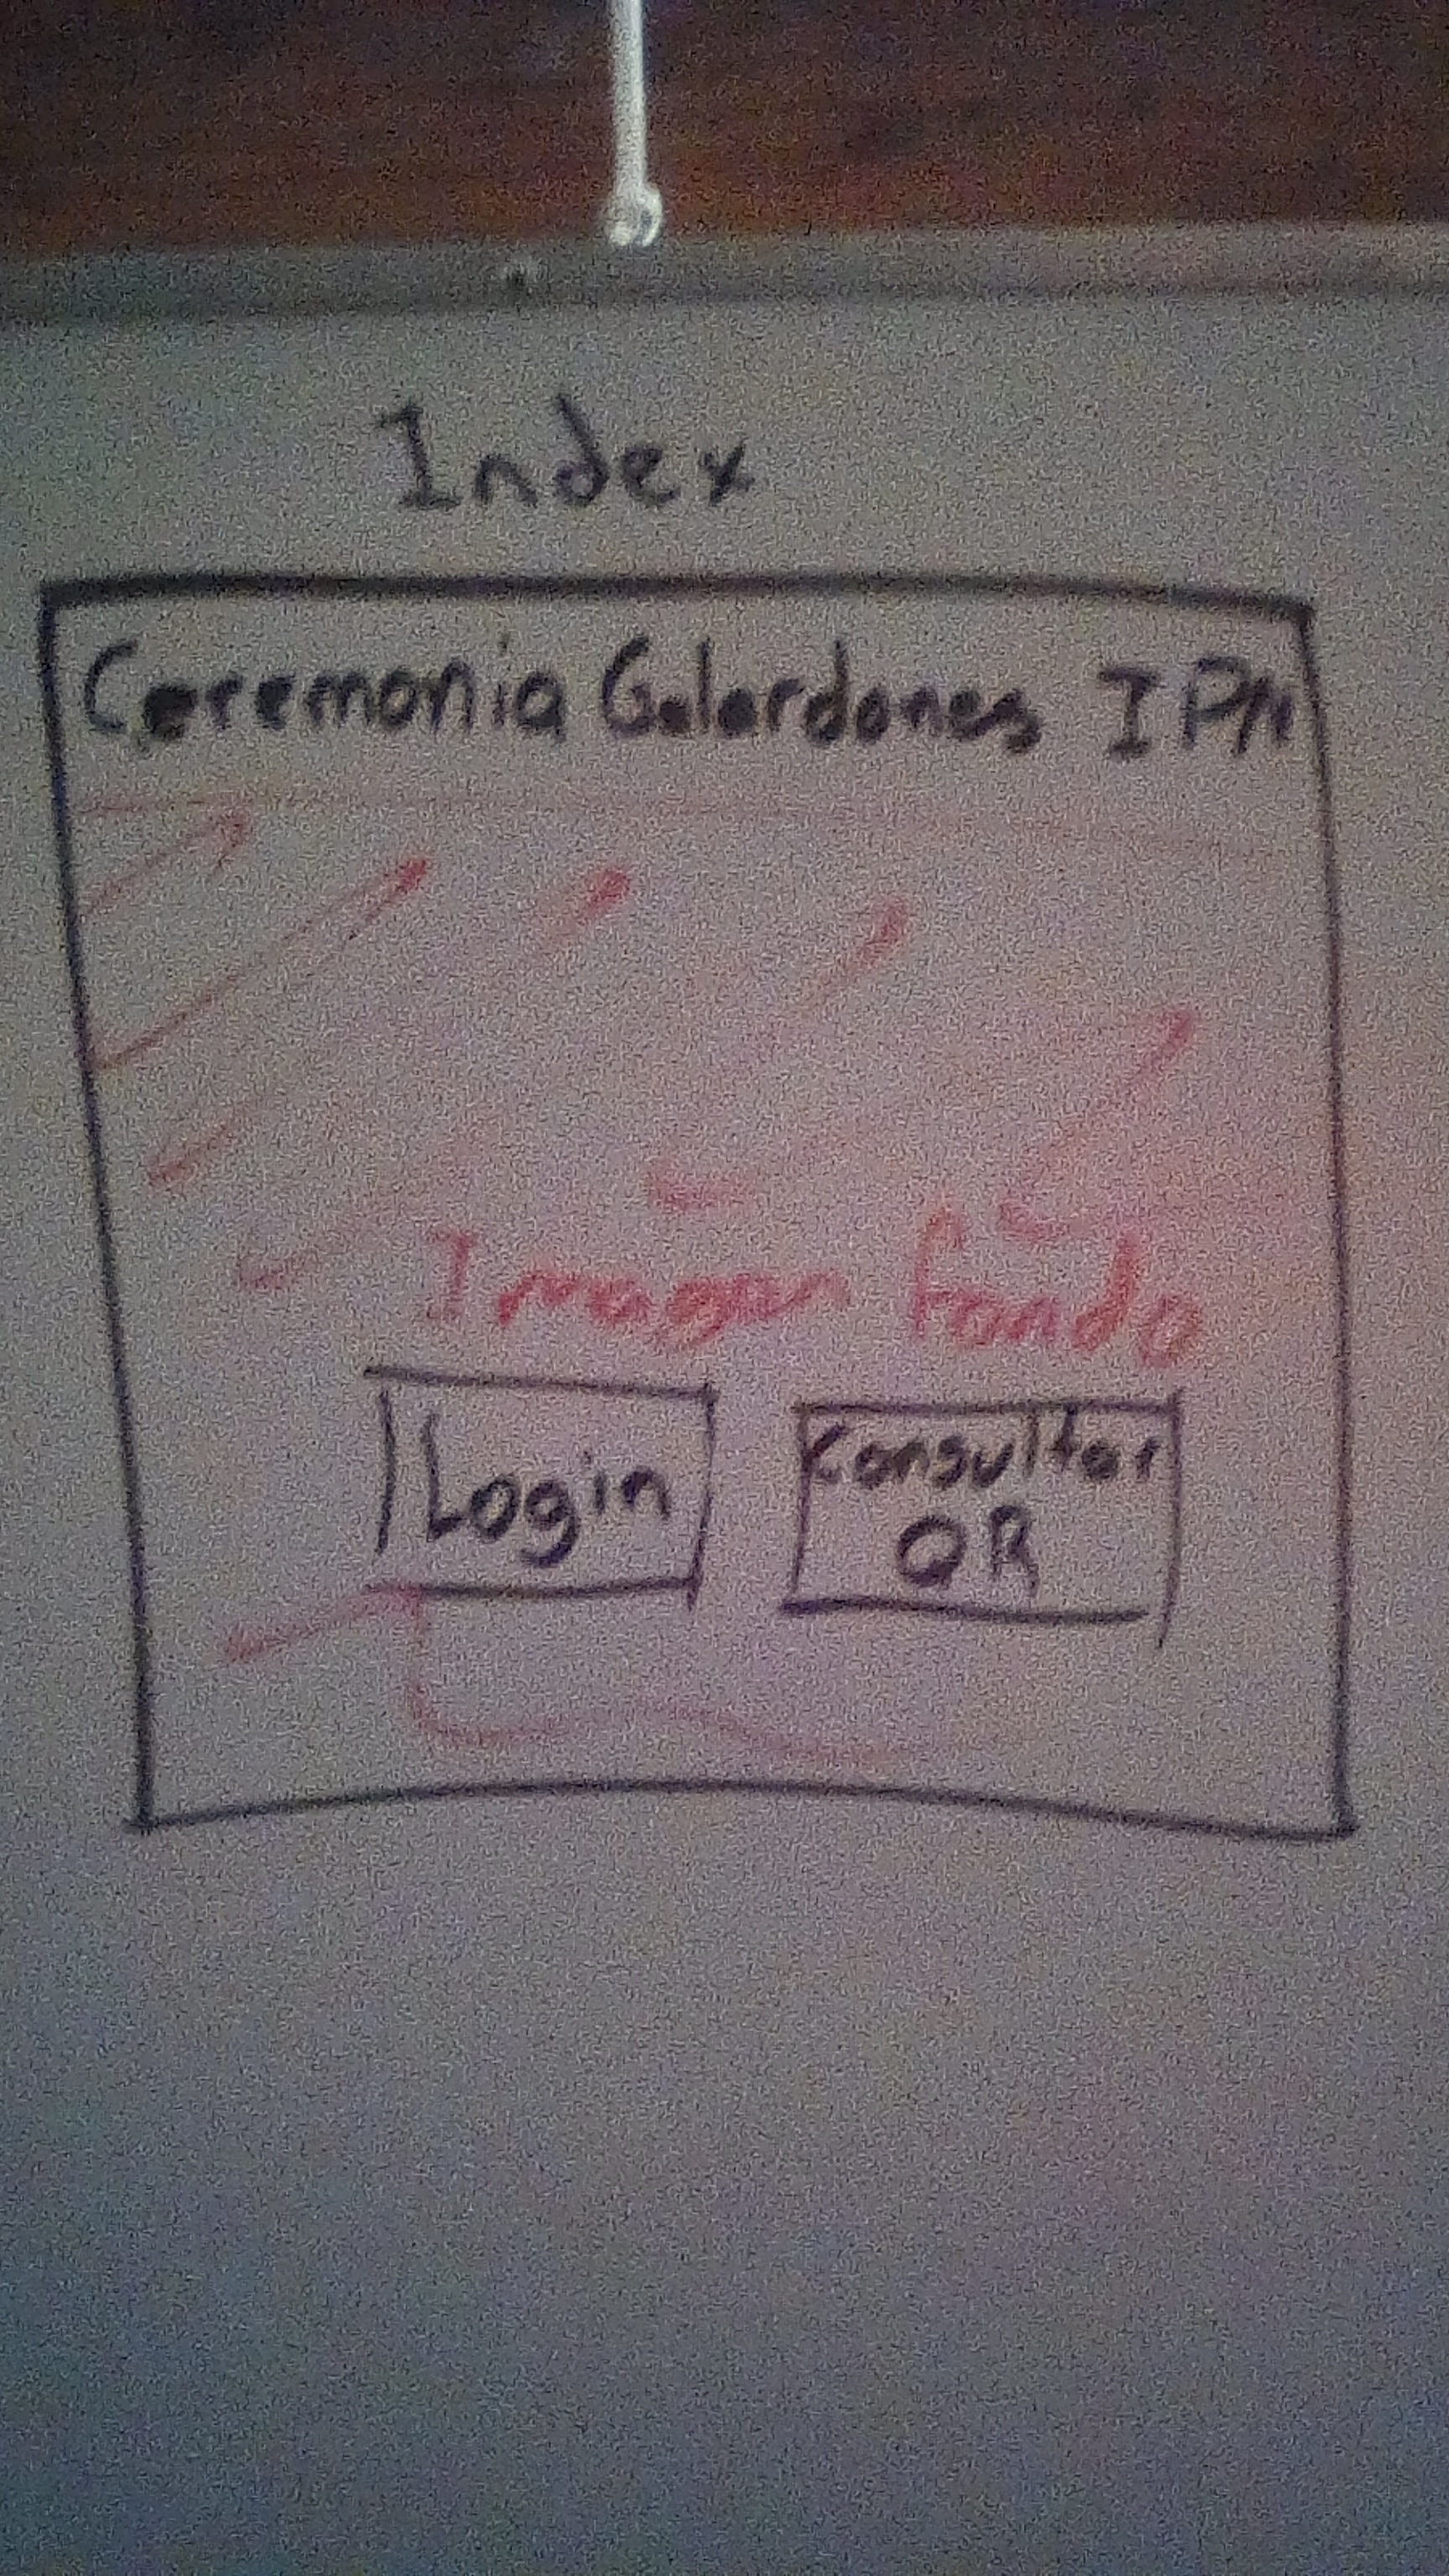 Index
Ceremonia Galardones IPN
Imagen fondo
Login
Consultar
QR